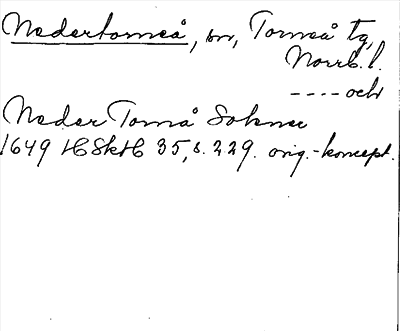 Nedertorneå, sn, Torneå tg,
Norrb. l.
---- och
Neder Tornå Soknee
1649 HSkH 35, s. 229. orig.-koncept.